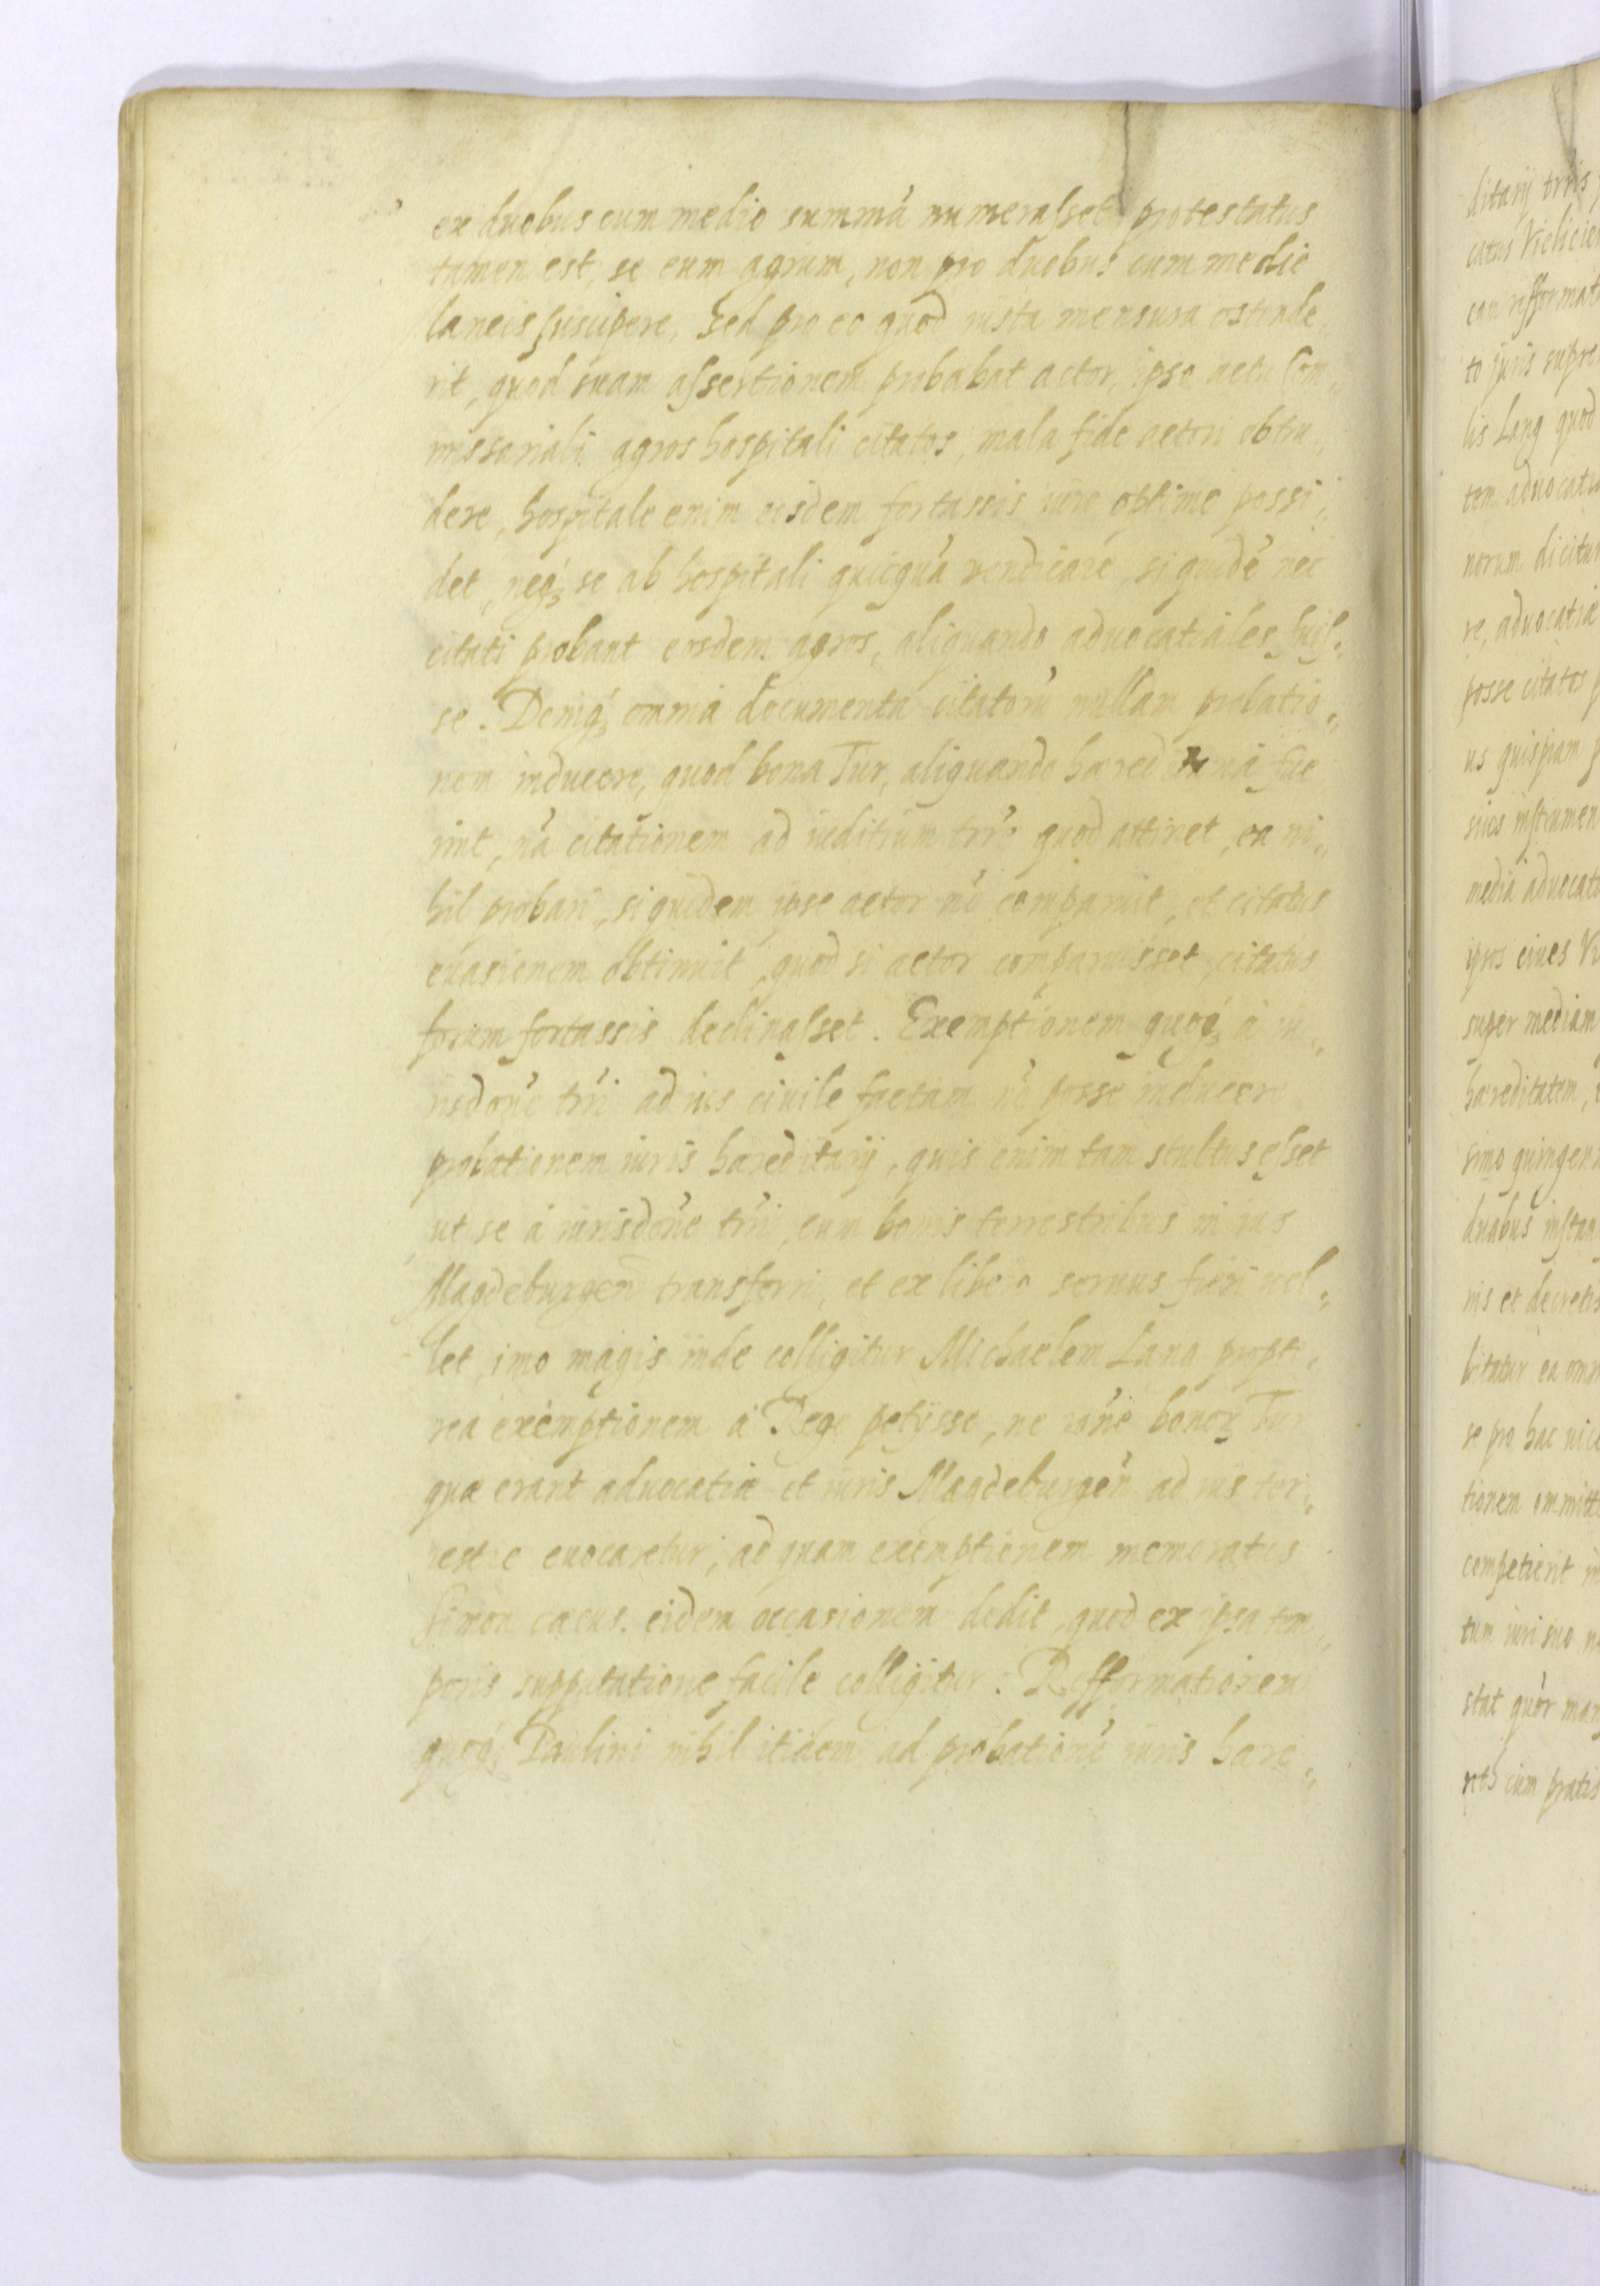 ex duobus cum medio summa' numerasset, protestatus
tamen est, se eum agrum, non pro duobus cum medio
laneis suscipere, sed pro eo quod iusta mensura ostende
rit, quod suam assertionem probabat actor, ipso actu Com„
missariali agros hospitali citatos, mala fide actori obtru„
dere, hospitale enim eosdem fortassis iure optimo possi„
det, neq; se ab hospitali quicqua' vendicare, si quide' nec
citati probant eosdem agros, aliquando aduocatiales fuis„
se. Deniq; omnia documenta citatoru' nullam probatio„
nem inducere, quod bona Tur, aliquando hared fue
rint, na' citationem ad iuditium trr's quod attinet, ea ni„
hil probari, si quidem ipse actor no' comparuit, et citatus
euasionem obtinuit, quod si actor comparuisset, citatus
forum fortassis declinasset. Exemptionem quoq; a iu„
risdone' trri' ad ius ciuile factam no' posse inducere
probationem iuris hareditarij, quis enim tam stultus esset
ut se a iurisdone' trri', cum bonis terrestribus in ius
Magdeburgen' transferri, et ex libero seruus fieri uel„
let, imo magis inde colligitur Michaelem Lang propte„
rea exemptionem a Rege petijsse, ne rone' bonor Tur
qua erant aduocatia et iuris Magdeburgen' ad ius ter„
restre euocaretur, ad quam exemptionem memoratus
Simon caecus eidem occasionem dedit, quod ex ipsa tem„
poris supputatione facile colligitur: Refformationem
quoq; Paulini nihil itidem ad probatione' iuris hare„
ditarij trr's
catus
eam refformat
to juris supre
lis Lang quod
tem aduocatia
norum dicitur
re, aduocatia
posse citatos p
us quispiam p
suos instrumen
media aduocat
ipsos ciues
super mediam
hareditatem,
simo quingen
duabus instan
nis et decretis
bitatur ea omn
se pro hac uice
tionem ommitte
competierit
tum iuri suo
stat quor man
cum pratis